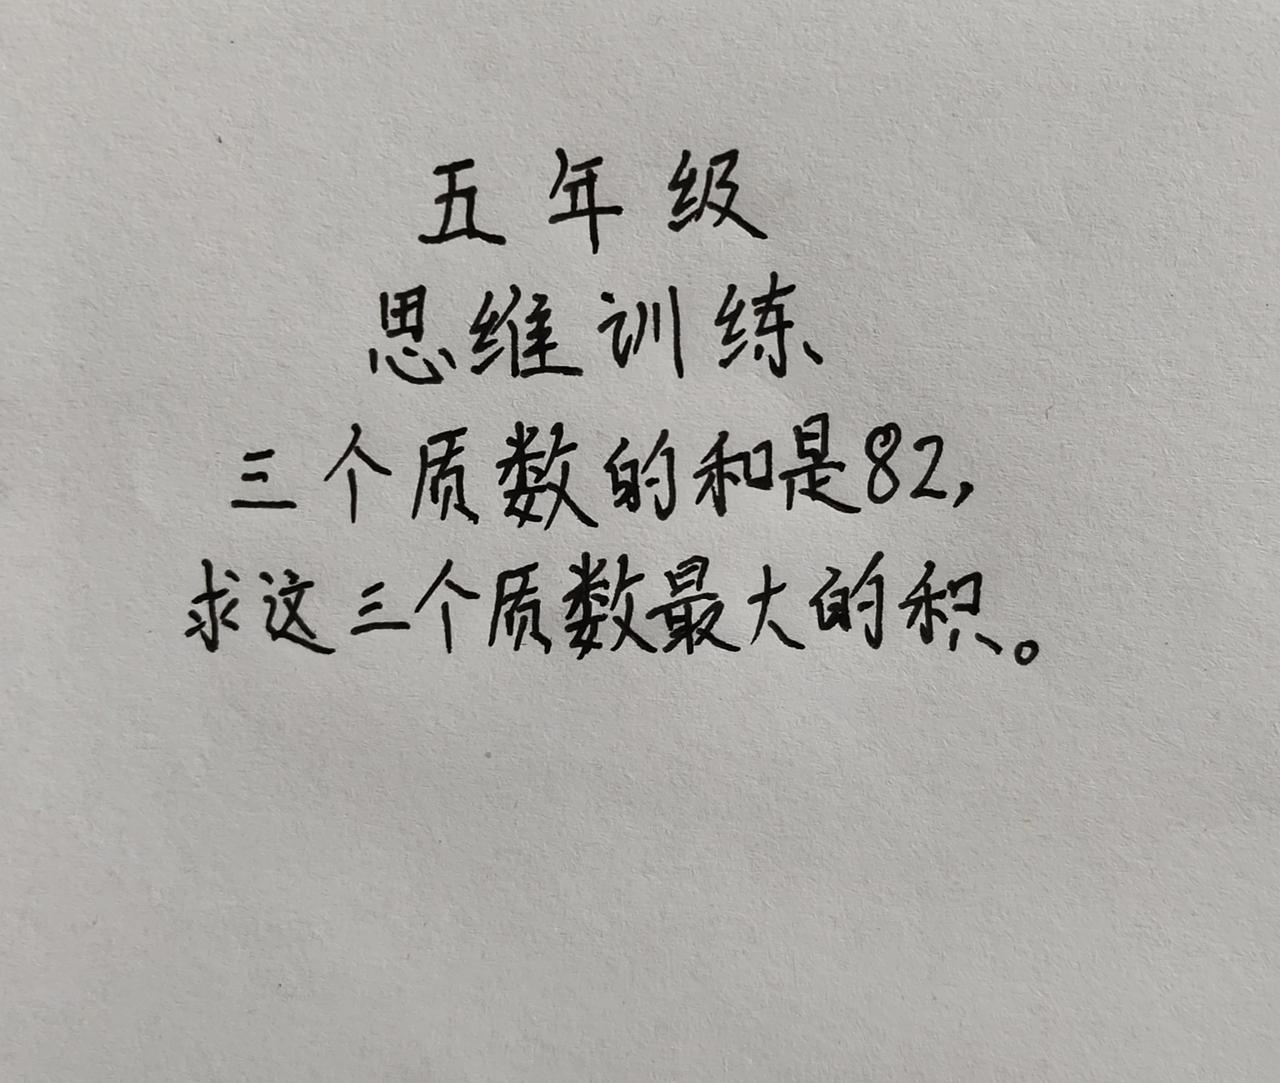 五年级
思维训练
三个质数的和是82,
求这三个质数最大的积。